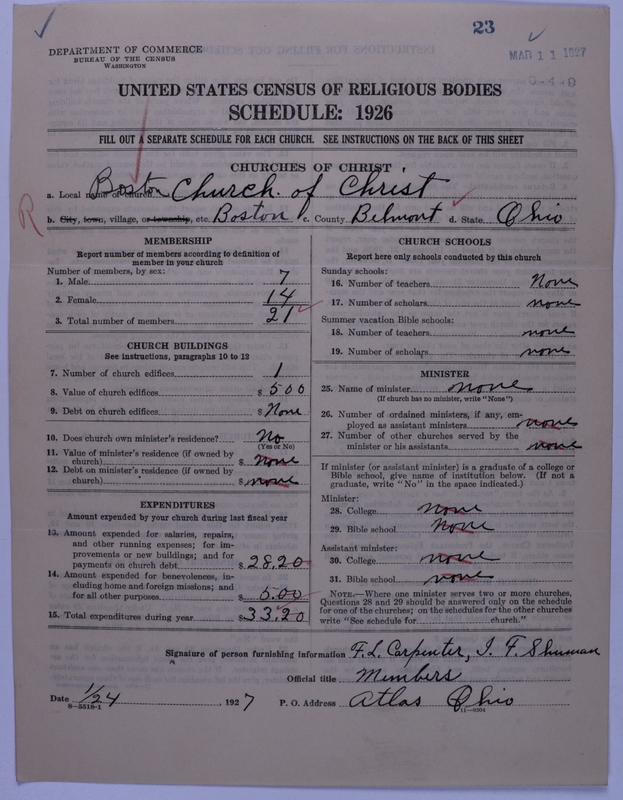 23
MAR 11 1927
DEPARTMENT OF COMMERCE
BUREAU OF THE CENSUS
WASHINGTON
UNITED STATES CENSUS OF RELIGIOUS BODIES
SCHEDULE: 1926
FILL OUT A SEPARATE SCHEDULE FOR EACH CHURCH. SEE INSTRUCTIONS ON THE BACK OF THIS SHEET
CHURCHES OF CHRIST
a. Local name of church Boston Church of Christ
R b. City, town, village, or township, etc. Boston c. County Belmont d. State Ohio
MEMBERSHIP
Report number of members according to definition of
member in your church
Number of members, by sex:
1. Male 7
2. Female 14
3. Total number of members 21
CHURCH BUILDINGS
See instructions, paragraphs 10 to 12
7. Number of church edifices 1
8. Value of church edifices $ 500
9. Debt on church edifices $ None
10. Does church own minister's residence? No
(Yes or No)
11. Value of minister's residence (if owned by
church) $ None
12. Debt on minister's residence (if owned by
church) $ none
EXPENDITURES
Amount expended by your church during last fiscal year
13. Amount expended for salaries, repairs,
and other running expenses; for im-
provements or new buildings; and for
payments on church debt $ 28.20
14. Amount expended for benevolences, in-
cluding home and foreign missions; and
for all other purposes $ 5.00
15. Total expenditures during year $ 33.20
CHURCH SCHOOLS
Report here only schools conducted by this church
Sunday schools:
16. Number of teachers None
17. Number of scholars none
Summer vacation Bible schools:
18. Number of teachers none
19. Number of scholars none
MINISTER
25. Name of minister none
(If church has no minister, write "None")
26. Number of ordained ministers, if any, em-
ployed as assistant ministers none
27. Number of other churches served by the
minister or his assistants none
If minister (or assistant minister) is a graduate of a college or
Bible school, give name of institution below. (If not a
graduate, write "No" in the space indicated.)
Minister:
28. College none
29. Bible school None
Assistant minister:
30. College none
31. Bible school none
NOTE.—Where one minister serves two or more churches,
Questions 28 and 29 should be answered only on the schedule
for one of the churches; on the schedules for the other churches
write "See schedule for church."
Signature of person furnishing information F. L. Carpenter, I. F. Shuman
Official title Members
Date 1/24, 1927 P. O. Address Atlas Ohio
8-5518-1 11-9304